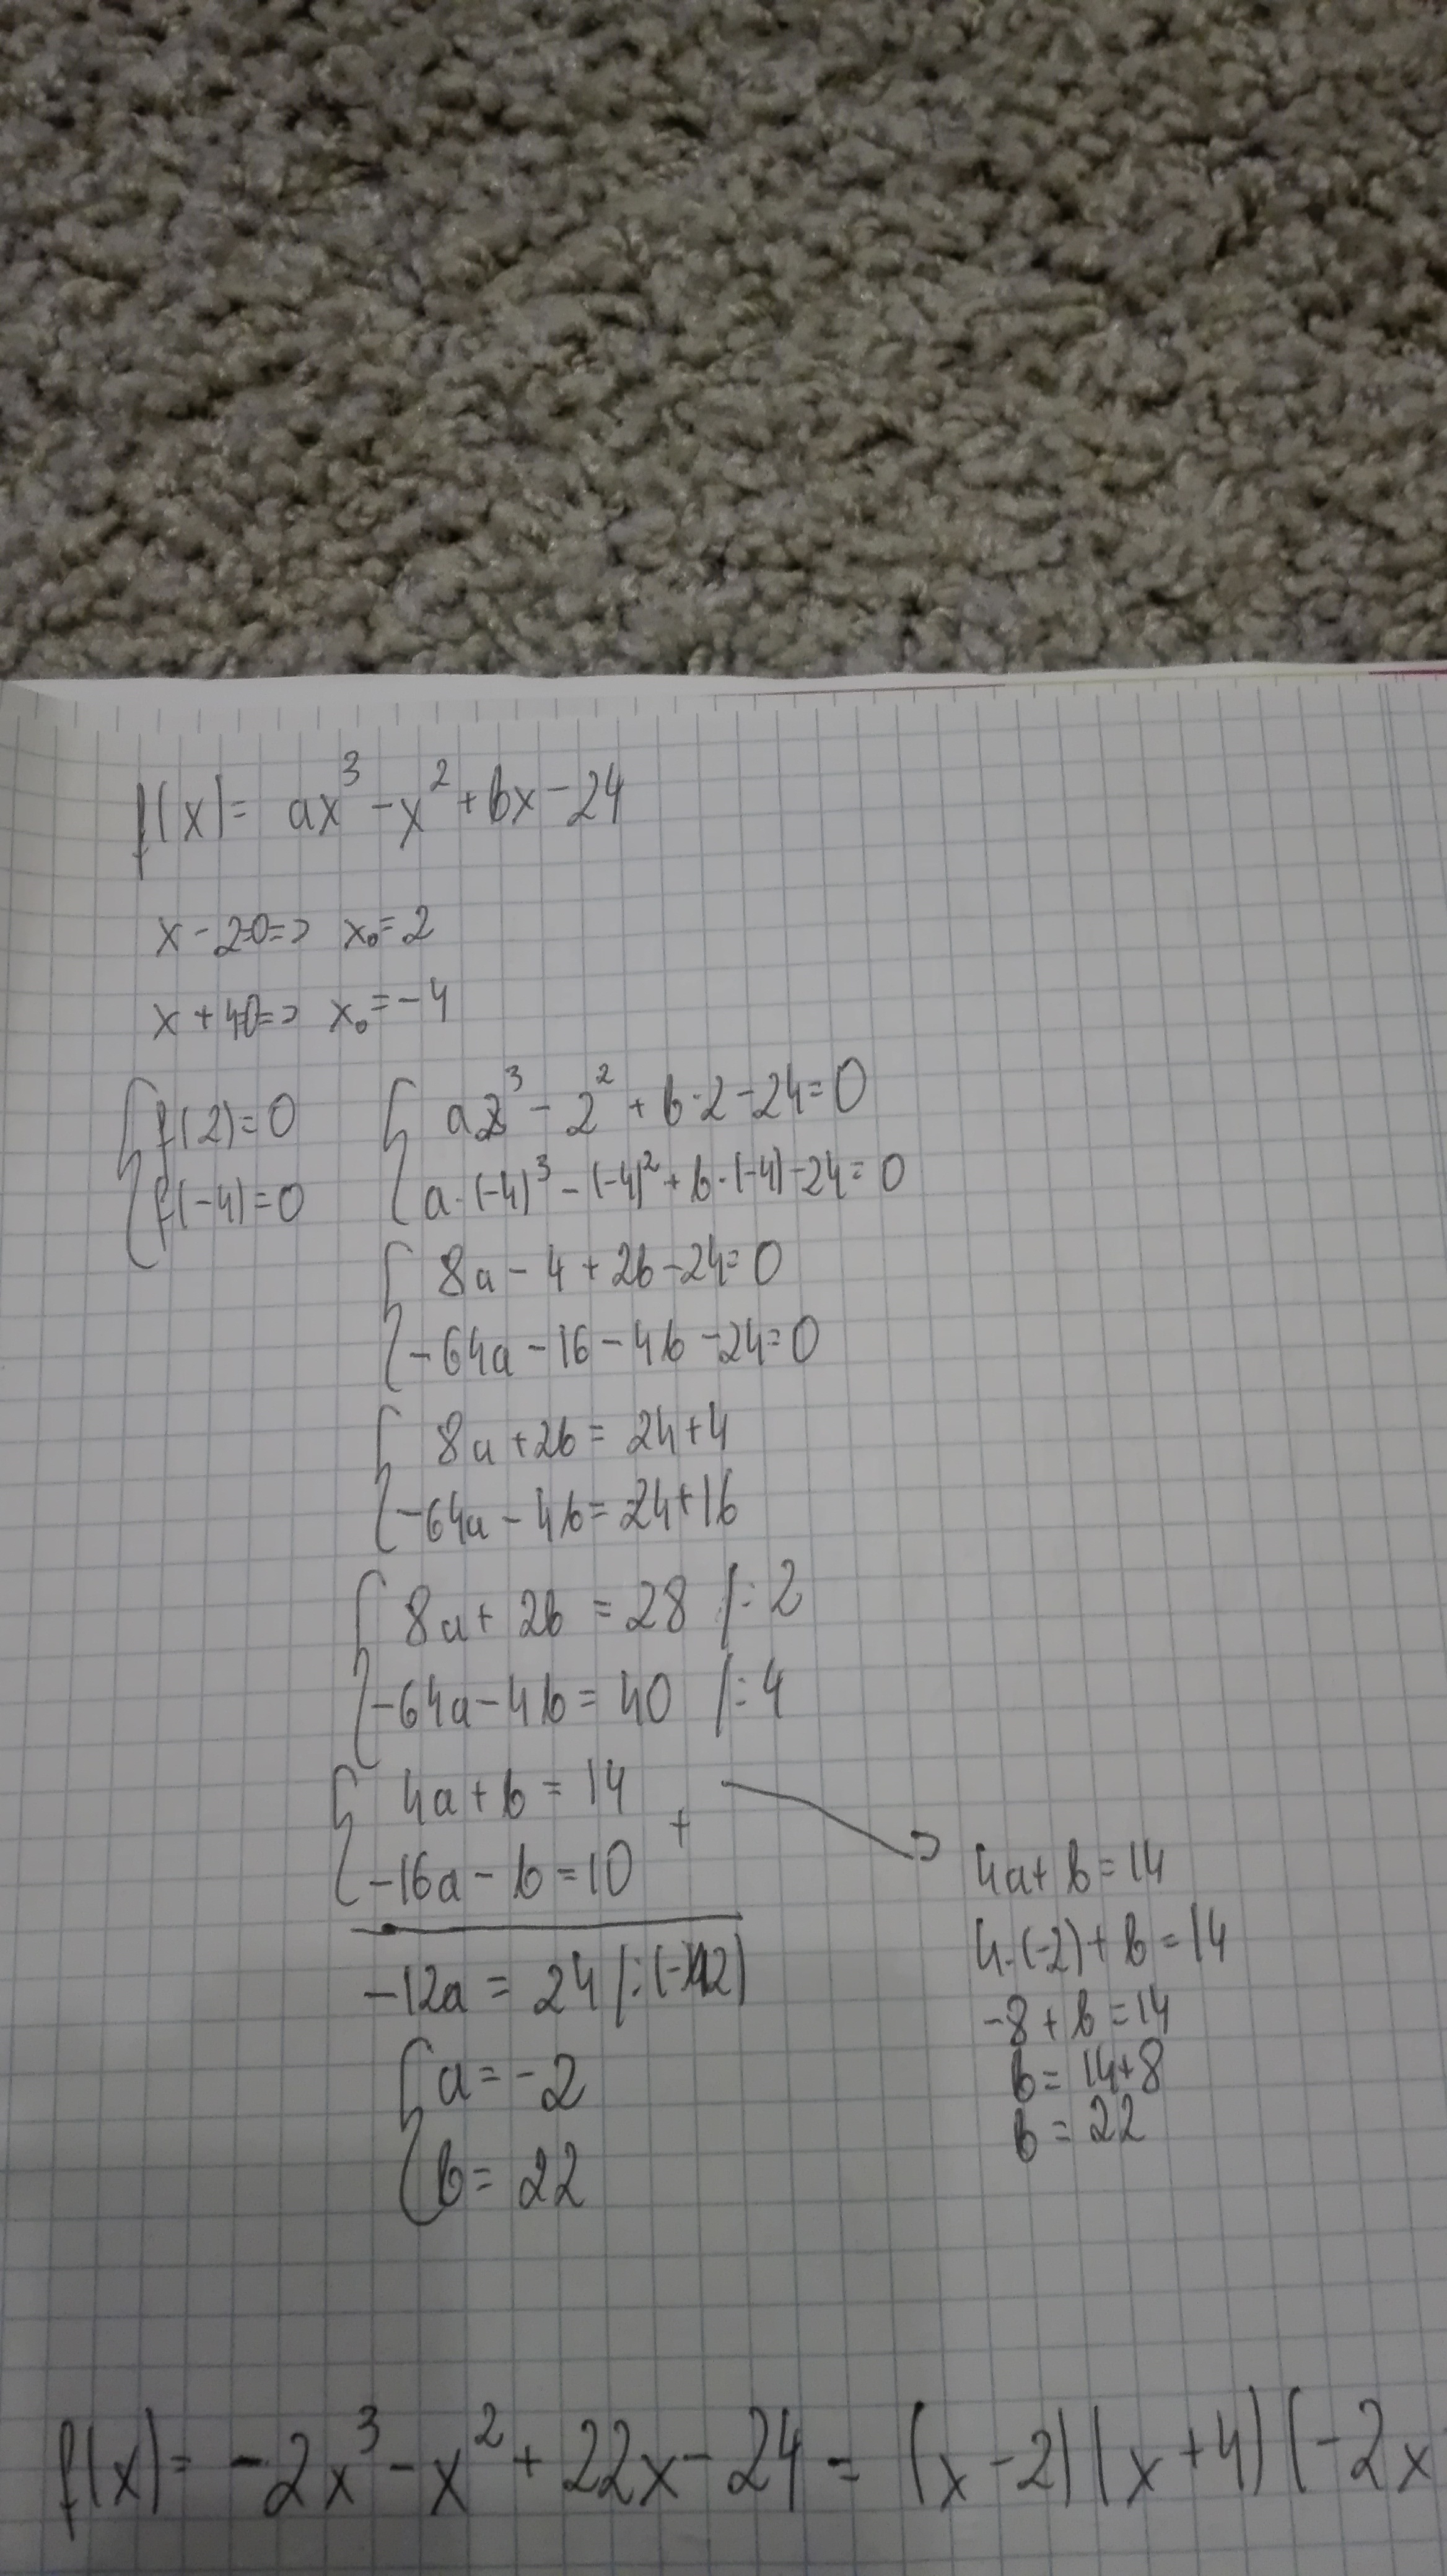 f(x) = ax³ - x² + bx - 24
x - 2=0 => x₀ = 2
x + 4=0 => x₀ = -4
{ f(2) = 0 { a2³ - 2² + b·2 - 24 = 0
{ f(-4) = 0 { a·(-4)³ - (-4)² + b·(-4) - 24 = 0
{ 8a - 4 + 2b - 24 = 0
{ -64a - 16 - 4b - 24 = 0
{ 8a + 2b = 24 + 4
{ -64a - 4b = 24 + 16
{ 8a + 2b = 28 /:2
{ -64a - 4b = 40 /:4
{ 4a + b = 14
{ -16a - b = 10 +
-12a = 24 /:(-12)
{ a = -2
{ b = 22
4a + b = 14
4·(-2) + b = 14
-8 + b = 14
b = 14 + 8
b = 22
f(x) = -2x³ - x² + 22x - 24 = (x - 2)(x + 4)(-2x